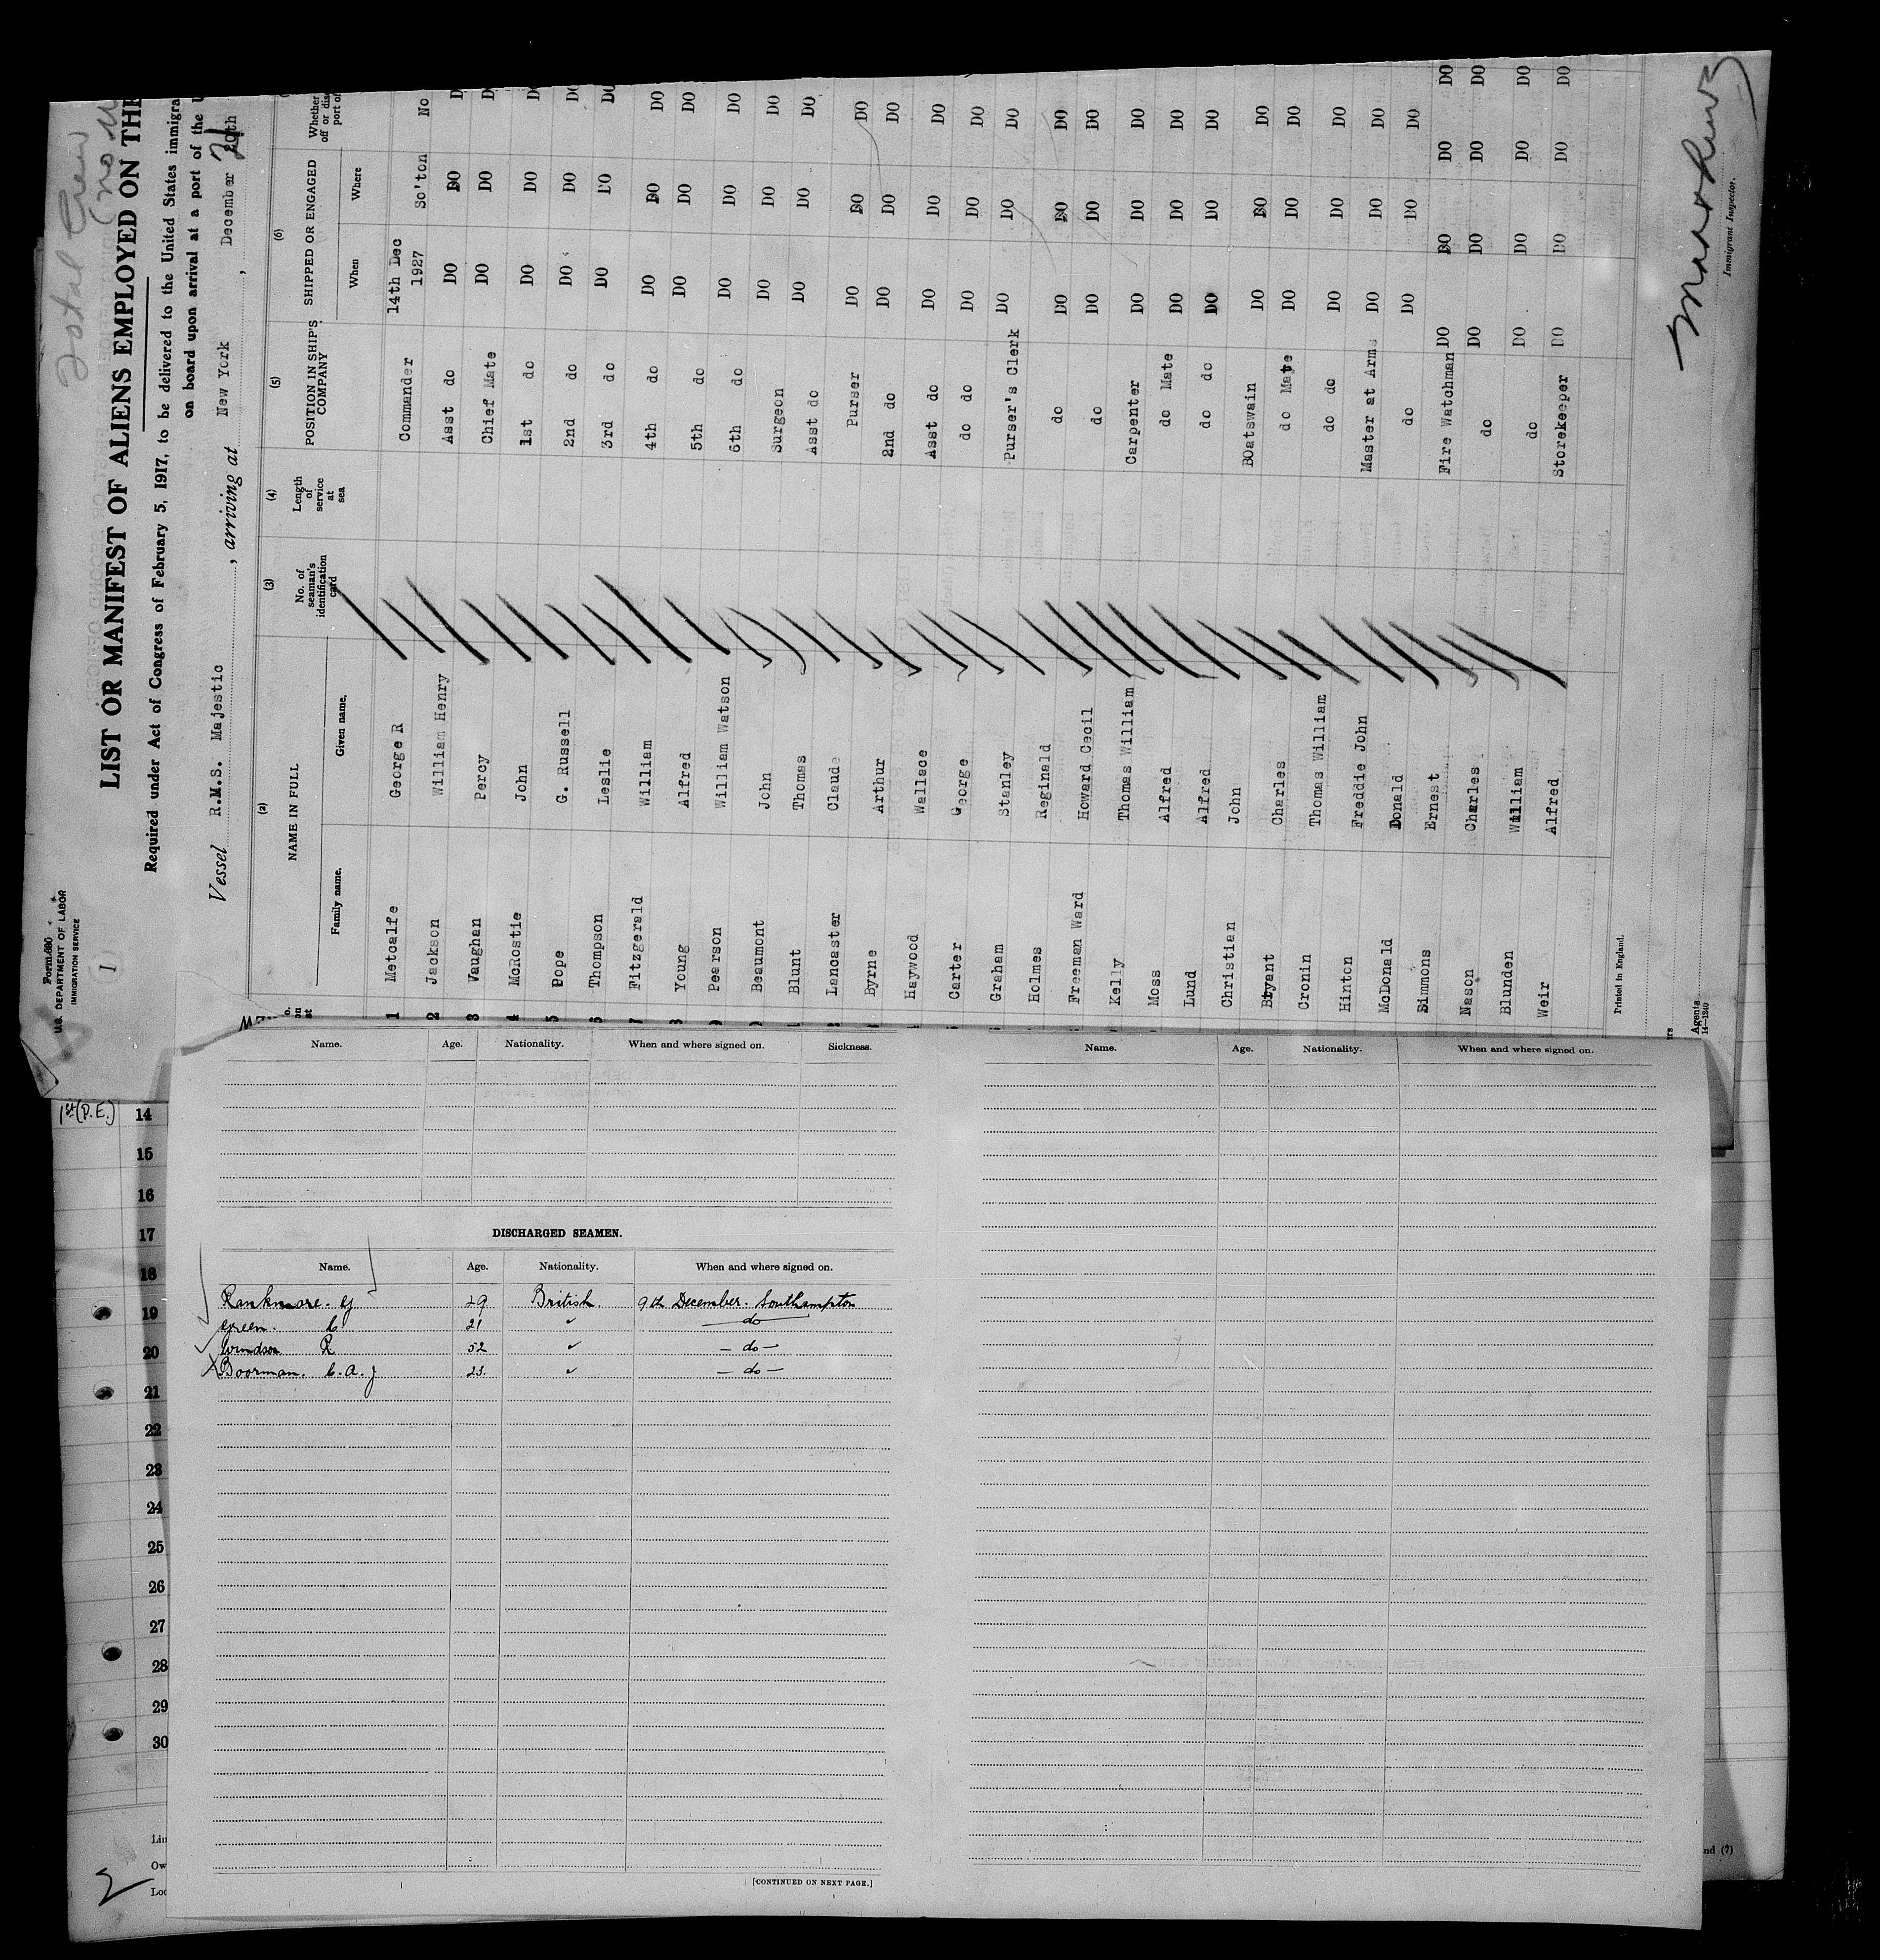 Form 680
U.S. DEPARTMENT OF LABOR
IMMIGRATION SERVICE
1
Total Crew
LIST OR MANIFEST OF ALIENS EMPLOYED ON THE
Required under Act of Congress of February 5, 1917, to be delivered to the United States immigra
on board upon arrival at a port of the U
Vessel R.M.S. Majestic, arriving at New York, December
(2) (3) (4) (5) (6)
NAME IN FULL No. of seaman's identification card Length of service at sea POSITION IN SHIP'S COMPANY SHIPPED OR ENGAGED Whether
Family name. Given name. When Where
1 Metcalfe George R Commander 14th Dec 1927 So'ton No
2 Jackson William Henry Asst do DO DO
3 Vaughan Percy Chief Mate DO DO
4 McRostie John 1st do DO DO
5 Pope G. Russell 2nd do DO DO
6 Thompson Leslie 3rd do DO DO
7 Fitzgerald William 4th do DO DO DO
8 Young Alfred 5th do DO DO DO
9 Pearson William Watson 6th do DO DO DO
Beaumont John Surgeon DO DO DO
Blunt Thomas Asst do DO DO DO
Lancaster Claude Purser DO DO DO
Byrne Arthur 2nd do DO DO DO
Haywood Wallace Asst do DO DO DO
Carter George do do DO DO DO
Graham Stanley Purser's Clerk DO DO DO
Holmes Reginald do DO DO DO
Freeman Ward Howard Cecil do DO DO DO
Kelly Thomas William Carpenter DO DO DO
Moss Alfred do Mate DO DO DO
Lund Alfred do do DO DO DO
Christian John Boatswain DO DO DO
Bryant Charles do Mate DO DO DO
Cronin Thomas William do do DO DO DO
Hinton Freddie John Master at Arms DO DO DO
McDonald Donald do DO DO DO
Simmons Ernest Fire Watchman DO DO DO DO
Nason Charles do DO DO DO DO
Blunden William do DO DO DO DO
Weir Alfred Storekeeper DO DO DO DO
Printed in England.
Agents
14—1240
Immigrant Inspector.
Name. Age. Nationality. When and where signed on. Sickness.
Name. Age. Nationality. When and where signed on.
1st (P.E.) 14
15
16
17
18
19
20
21
22
23
24
25
26
27
28
29
30
DISCHARGED SEAMEN.
Name. Age. Nationality. When and where signed on.
Rankmore. 29 British 9th December. Southampton
Green. C 21 do
Windsor R 52 — do —
Boorman. C. A. J 23. — do —
[CONTINUED ON NEXT PAGE.]
Lin
Ow
Loc
2
nd (7)